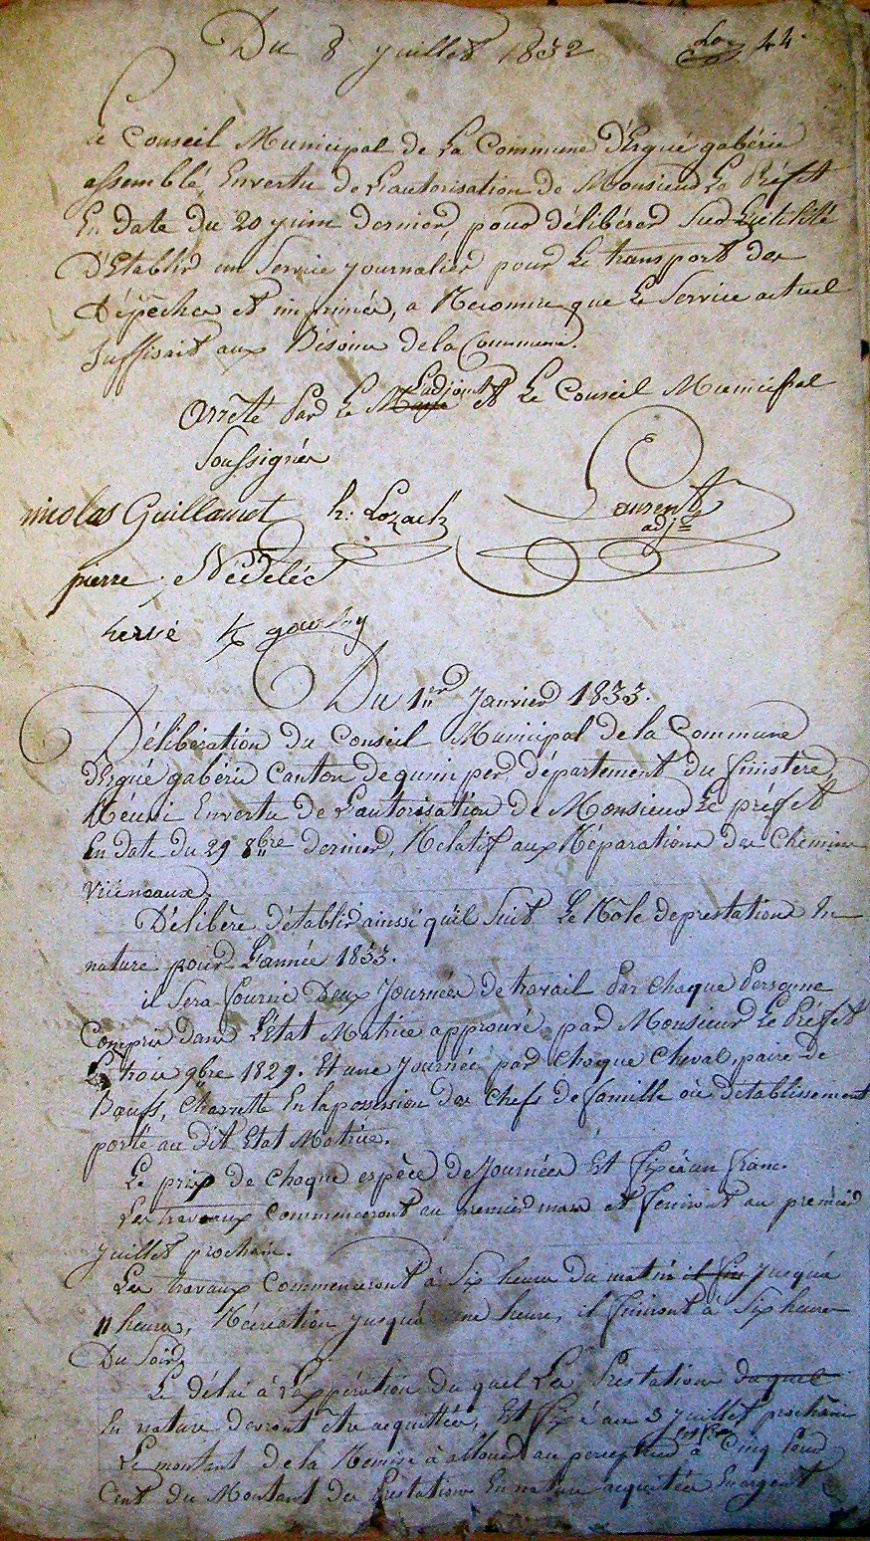 Du 8 Juillet 1832
44.
Le Conseil Municipal de La Commune d'Ergué gabéric
assemblé, Envertu de L'autorisation de Monsieur Le Préfet
En date du 20 juin dernier, pour délibérer Sur L'utilité
D'Etablir un Service journalier pour Le transport des
Dépêches et imprimés, a Reconnu que Le Service actuel
Suffisait aux Bésoins de la Commune.
Arrêté Par Le Maire L'adjoint et Le Conseil Municipal
Soussignés
nicolas Guillamet h: Lozach Laurent
adjt
pierre Nédéléc
hervé
Du 1er Janvier 1833.
Délibération du Conseil Municipal de la Commune
d'Ergué gabéric Canton de quimper, département du finistère,
Réuni Envertu de L'autorisation de Monsieur Le préfet
En date du 29 8bre dernier, Rélatif aux Réparations des Chemins
vicinaux.
Délibère d'établir ainssi qu'il Suit Le Rôle de prestations En
nature pour L'année 1833.
il Sera fournie Deux Journées de travail Par Chaque Personne
Compris dans L'Etat Matrice approuvé par Monsieur Le Préfet
Le trois 9bre 1829. Et une Journée par Chaque Cheval, paire de
Bœufs, Charrette En la possession des Chefs de famille où d'etablissement
porté au dit Etat Matrice.
Le prix de Chaque espèce de Journées Est fixé à un franc.
Les travaux Commenceront au premier mars et finiront au premier
Juillet prochain.
Les travaux Commenceront à Six heures du matin il fin Jusqu'à
11 heures, Récréation Jusqu'à une heure, il finiront à Six heures
Du Soir.
Le délai à L'expération du quel Les Prestations duquel
En nature devront être acquittées, Est fixé au 3 Juillet prochain
Le montant de la Remise à allouer au percepteur à Cinq Pour
Cent du Montant des Prestations En nature acquitées En argent